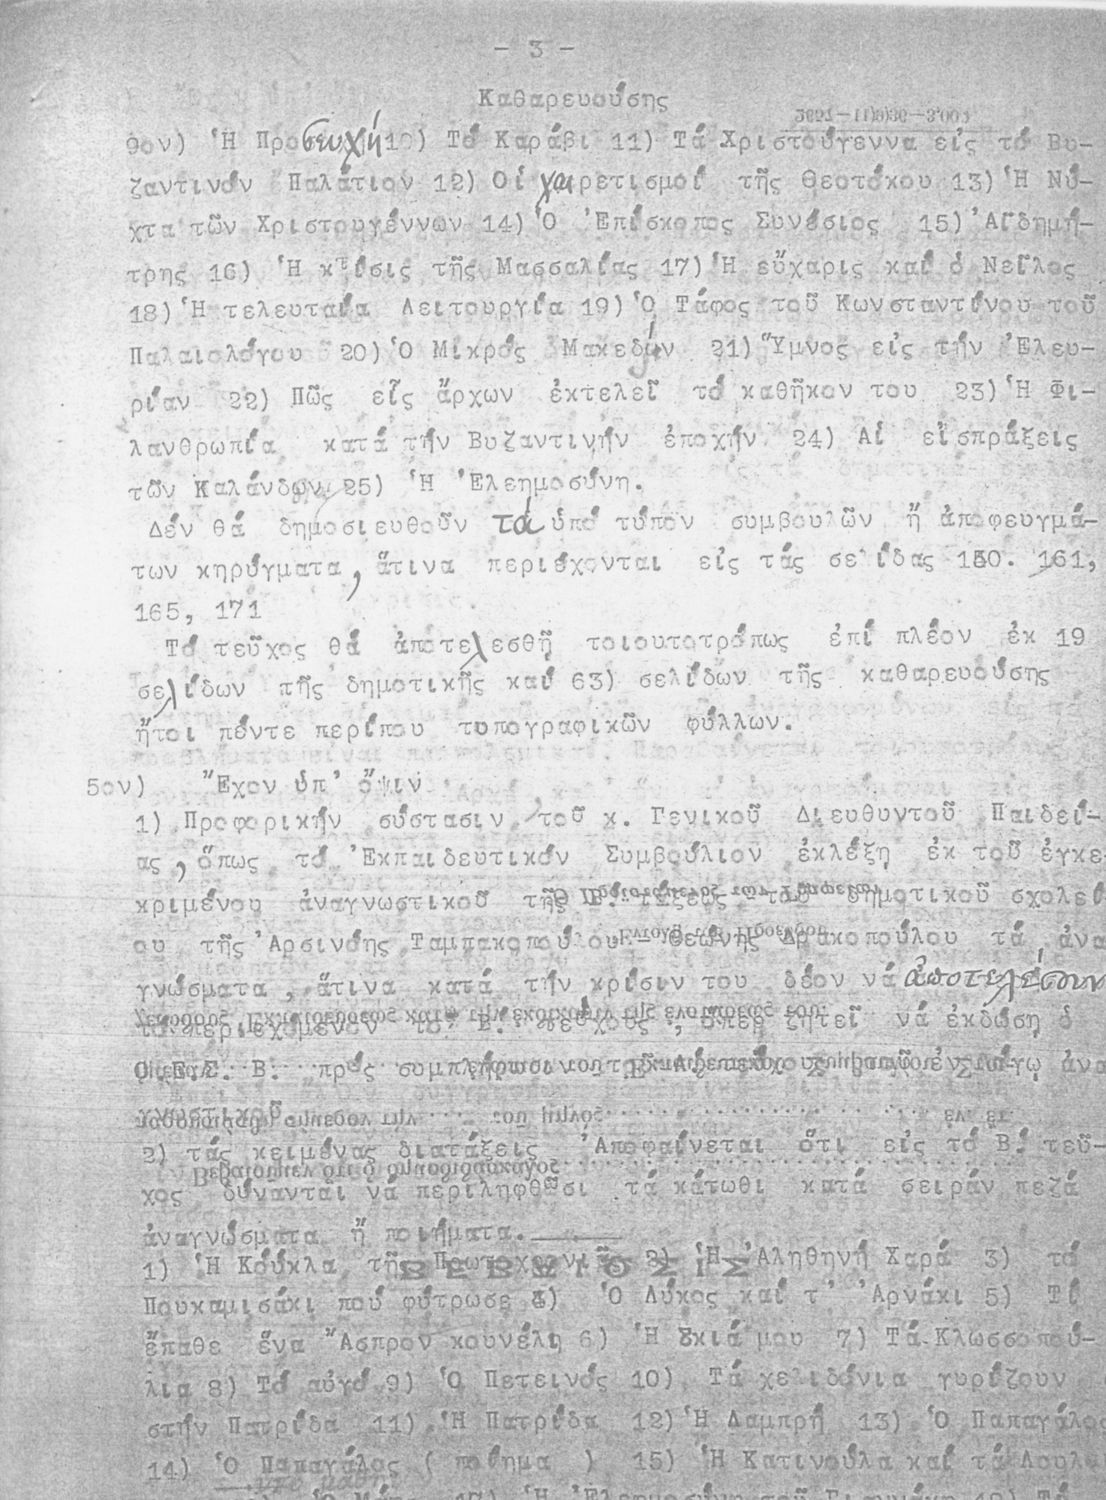 - 3 -
Καθαρευούσης
9ον) Ἡ Προσευχή 10) Τό Καράβι 11) Τά Χριστούγεννα εἰς τό Βυ-
ζαντινόν Παλάτιον 12) Οἱ χαιρετισμοί τῆς Θεοτόκου 13) Ἡ Νύ-
χτα τῶν Χριστουγέννων 14) Ὁ Ἐπίσκοπος Συνέσιος 15) Ἁϊδημή-
τρης 16) Ἡ κτίσις τῆς Μασσαλίας 17) Ἡ εὔχαρις καί ὁ Νεῖλος
18) Ἡ τελευταία Λειτουργία 19) Ὁ Τάφος τοῦ Κωνσταντίνου τοῦ
Παλαιολόγου 20) Ὁ Μικρός Μακεδών 21) Ὕμνος εἰς τήν Ἐλευ-
ρίαν 22) Πῶς εἷς ἄρχων ἐκτελεῖ τό καθῆκον του 23) Ἡ Φι-
λανθρωπία κατά τήν Βυζαντινήν ἐποχήν 24) Αἱ εἰσπράξεις
τῶν Καλάνδων 25) Ἡ Ἐλεημοσύνη.
Δέν θά δημοσιευθοῦν τά ὑπό τύπον συμβουλῶν ἤ ἀποφευγμά-
των κηρύγματα, ἅτινα περιέχονται εἰς τάς σελίδας 150. 161,
165, 171
Τό τεῦχος θά ἀποτελεσθῇ τοιουτοτρόπως ἐπί πλέον ἐκ 19
σελίδων τῆς δημοτικῆς καί 63) σελίδων τῆς καθαρευούσης
ἤτοι πέντε περίπου τυπογραφικῶν φύλλων.
5ον) Ἔχον ὑπ' ὄψιν
1) Προφορικήν σύστασιν τοῦ κ. Γενικοῦ Διευθυντοῦ Παιδεί-
ας, ὅπως τό Ἐκπαιδευτικόν Συμβούλιον ἐκλέξῃ ἐκ τοῦ ἐγκε
κριμένου ἀναγνωστικοῦ τῆς Β. τάξεως τοῦ δημοτικοῦ σχολεί
ου τῆς Ἀρσινόης Ταμπακοπούλου - Θεώνης Δρακοπούλου τά ἀνα
γνώσματα, ἅτινα κατά τήν κρίσιν του δέον νά ἀποτελέσουν
τό περιεχόμενον τοῦ Β. τεύχους, ὅπερ ζητεῖ νά ἐκδώσῃ ὁ
Ο.Ε.Σ.Β. πρός συμπλήρωσιν τοῦ ἐν λόγῳ ἀνα
γνωστικοῦ
2) τάς κειμένας διατάξεις Ἀποφαίνεται ὅτι εἰς τό Β. τεῦ-
χος δύνανται νά περιληφθῶσι τά κάτωθι κατά σειράν πεζά
ἀναγνώσματα ἤ ποιήματα.
1) Ἡ Κούκλα τῆς Πρωτοχρονιᾶς 2) Ἡ Ἀληθηνή Χαρά 3) τό
Πουκαμισάκι πού φύτρωσε 4) Ὁ Λύκος καί τ' Ἀρνάκι 5) Τί
ἔπαθε ἕνα Ἄσπρον κουνέλι 6) Ἡ Σκιά μου 7) Τά Κλωσσοπού-
λια 8) Τό αὐγό 9) Ὁ Πετεινός 10) Τά χελιδόνια γυρίζουν
στήν Πατρίδα 11) Ἡ Πατρίδα 12) Ἡ Λαμπρή 13) Ὁ Παπαγάλος
14) Ὁ Παπαγάλος ( ποίημα ) 15) Ἡ Κατινούλα καί τά Λουλο